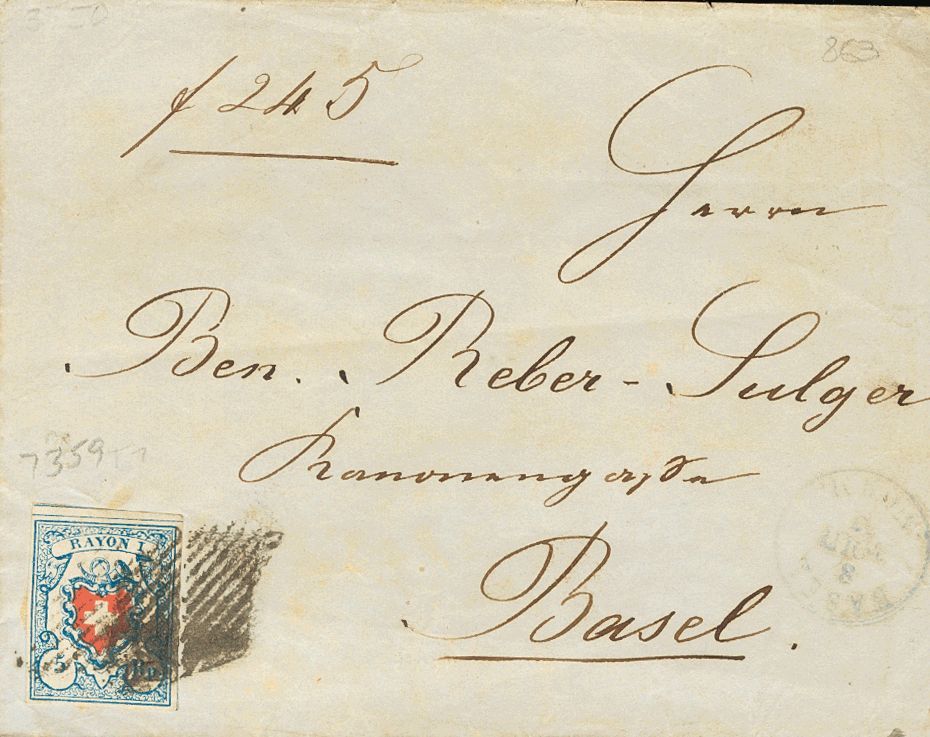 863
f 245
Herrn
Ben. Reber-Sulger
Kanonengasse
7359
Basel.
RAYON I
5 Rp.